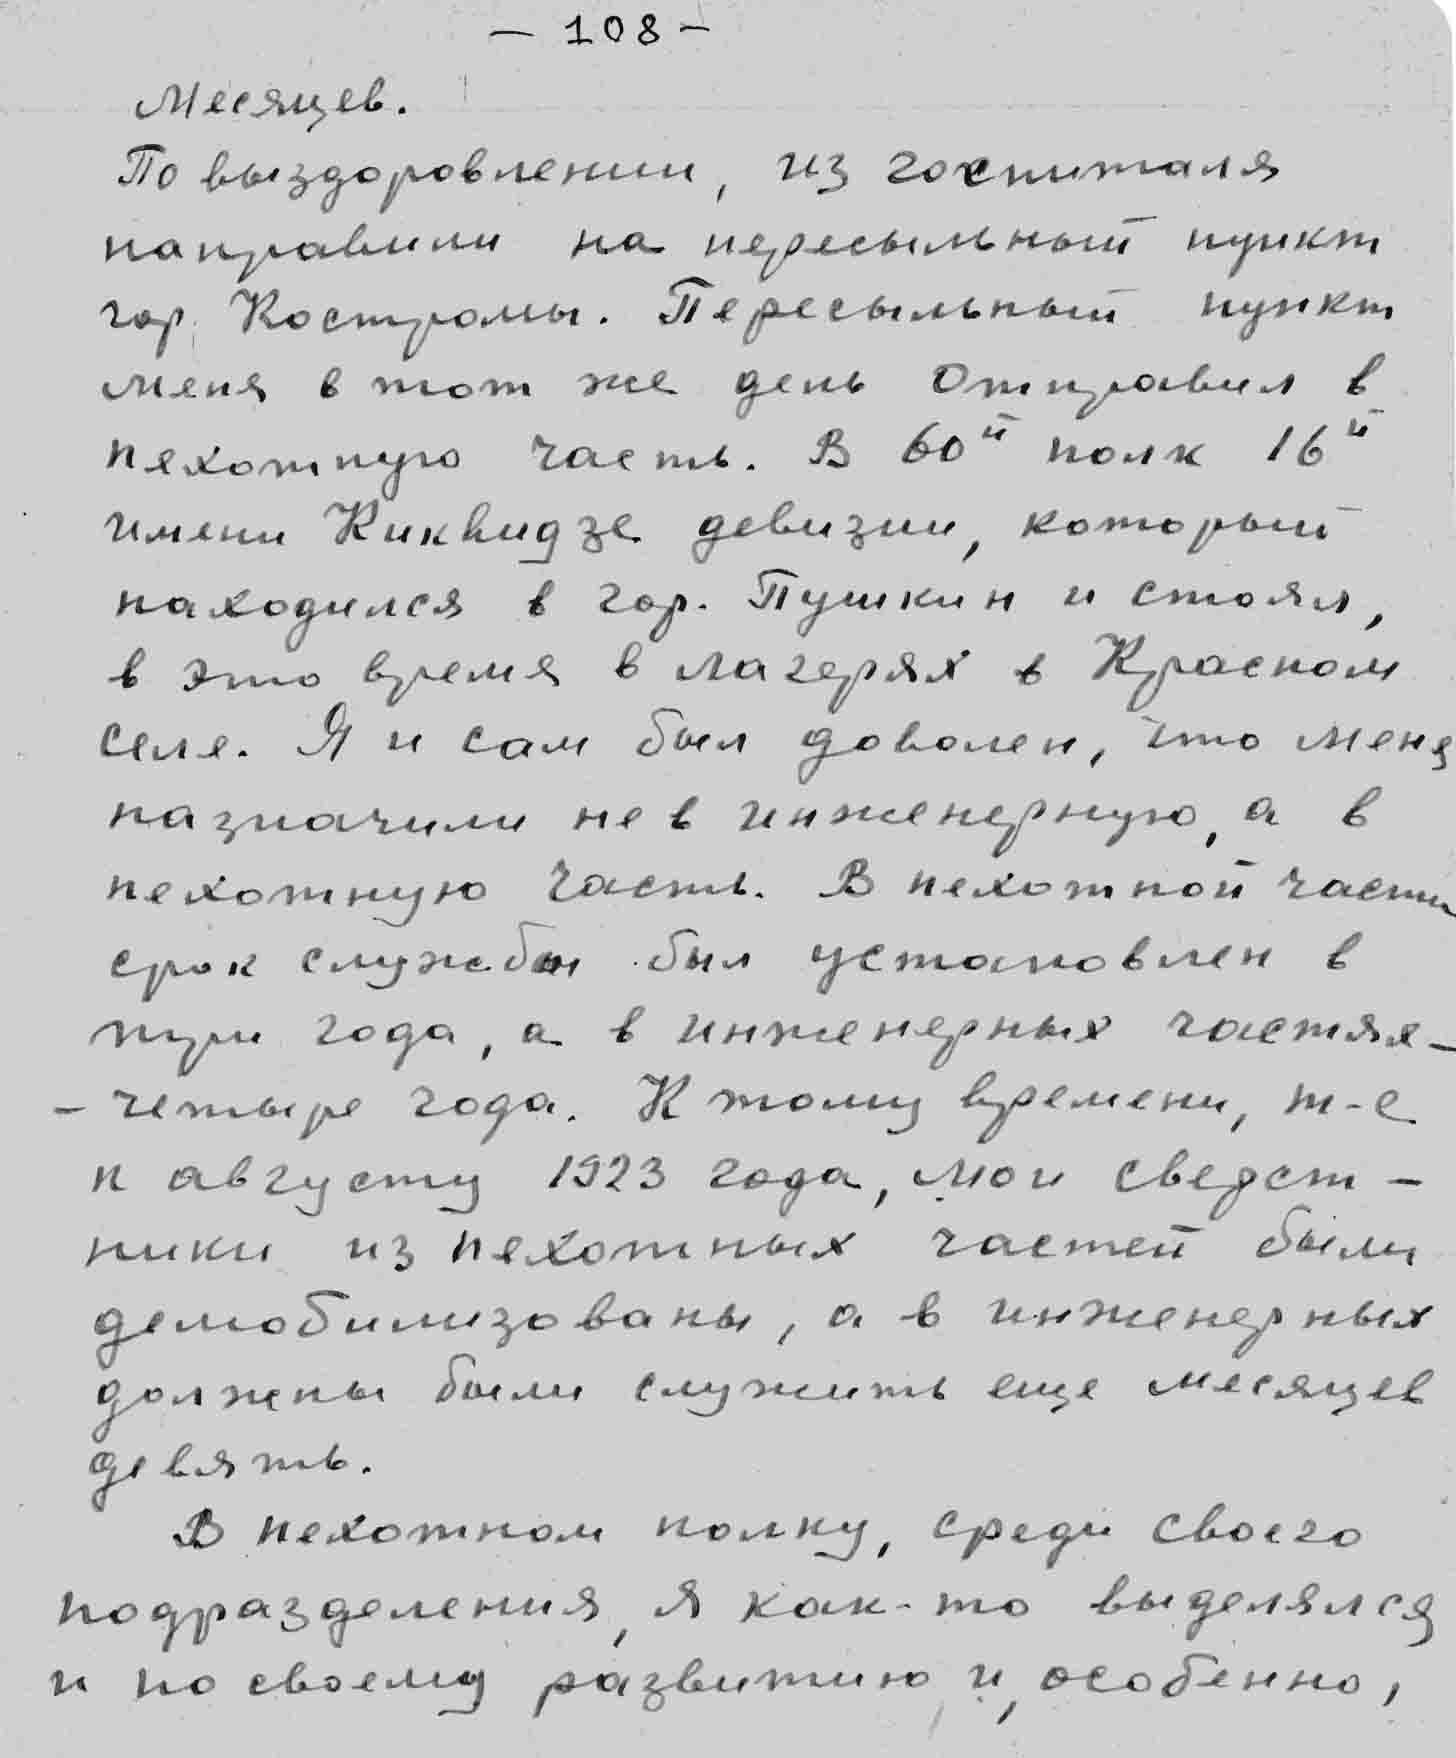 - 108 -
месяцев.
По выздоровлении, из госпиталя
направили на пересыльный пункт
гор. Костромы. Пересыльный пункт
меня в тот же день отправил в
пехотную часть. В 60й полк 16й
имени Киквидзе девизии, который
находился в гор. Пушкин и стоял,
в это время в лагерях в Красном
селе. Я и сам был доволен, что меня
назначили не в инженерную, а в
пехотную часть. В пехотной части
срок службы был установлен в
три года, а в инженерных частях -
- четыре года. К тому времени, т-е
к августу 1923 года, мои сверст-
ники из пехотных частей были
демобилизованы, а в инженерных
должны были служить еще месяцев
девять.
В пехотном полку, среди своего
подразделения, я как-то выделялся
и по своему развитию и, особенно,